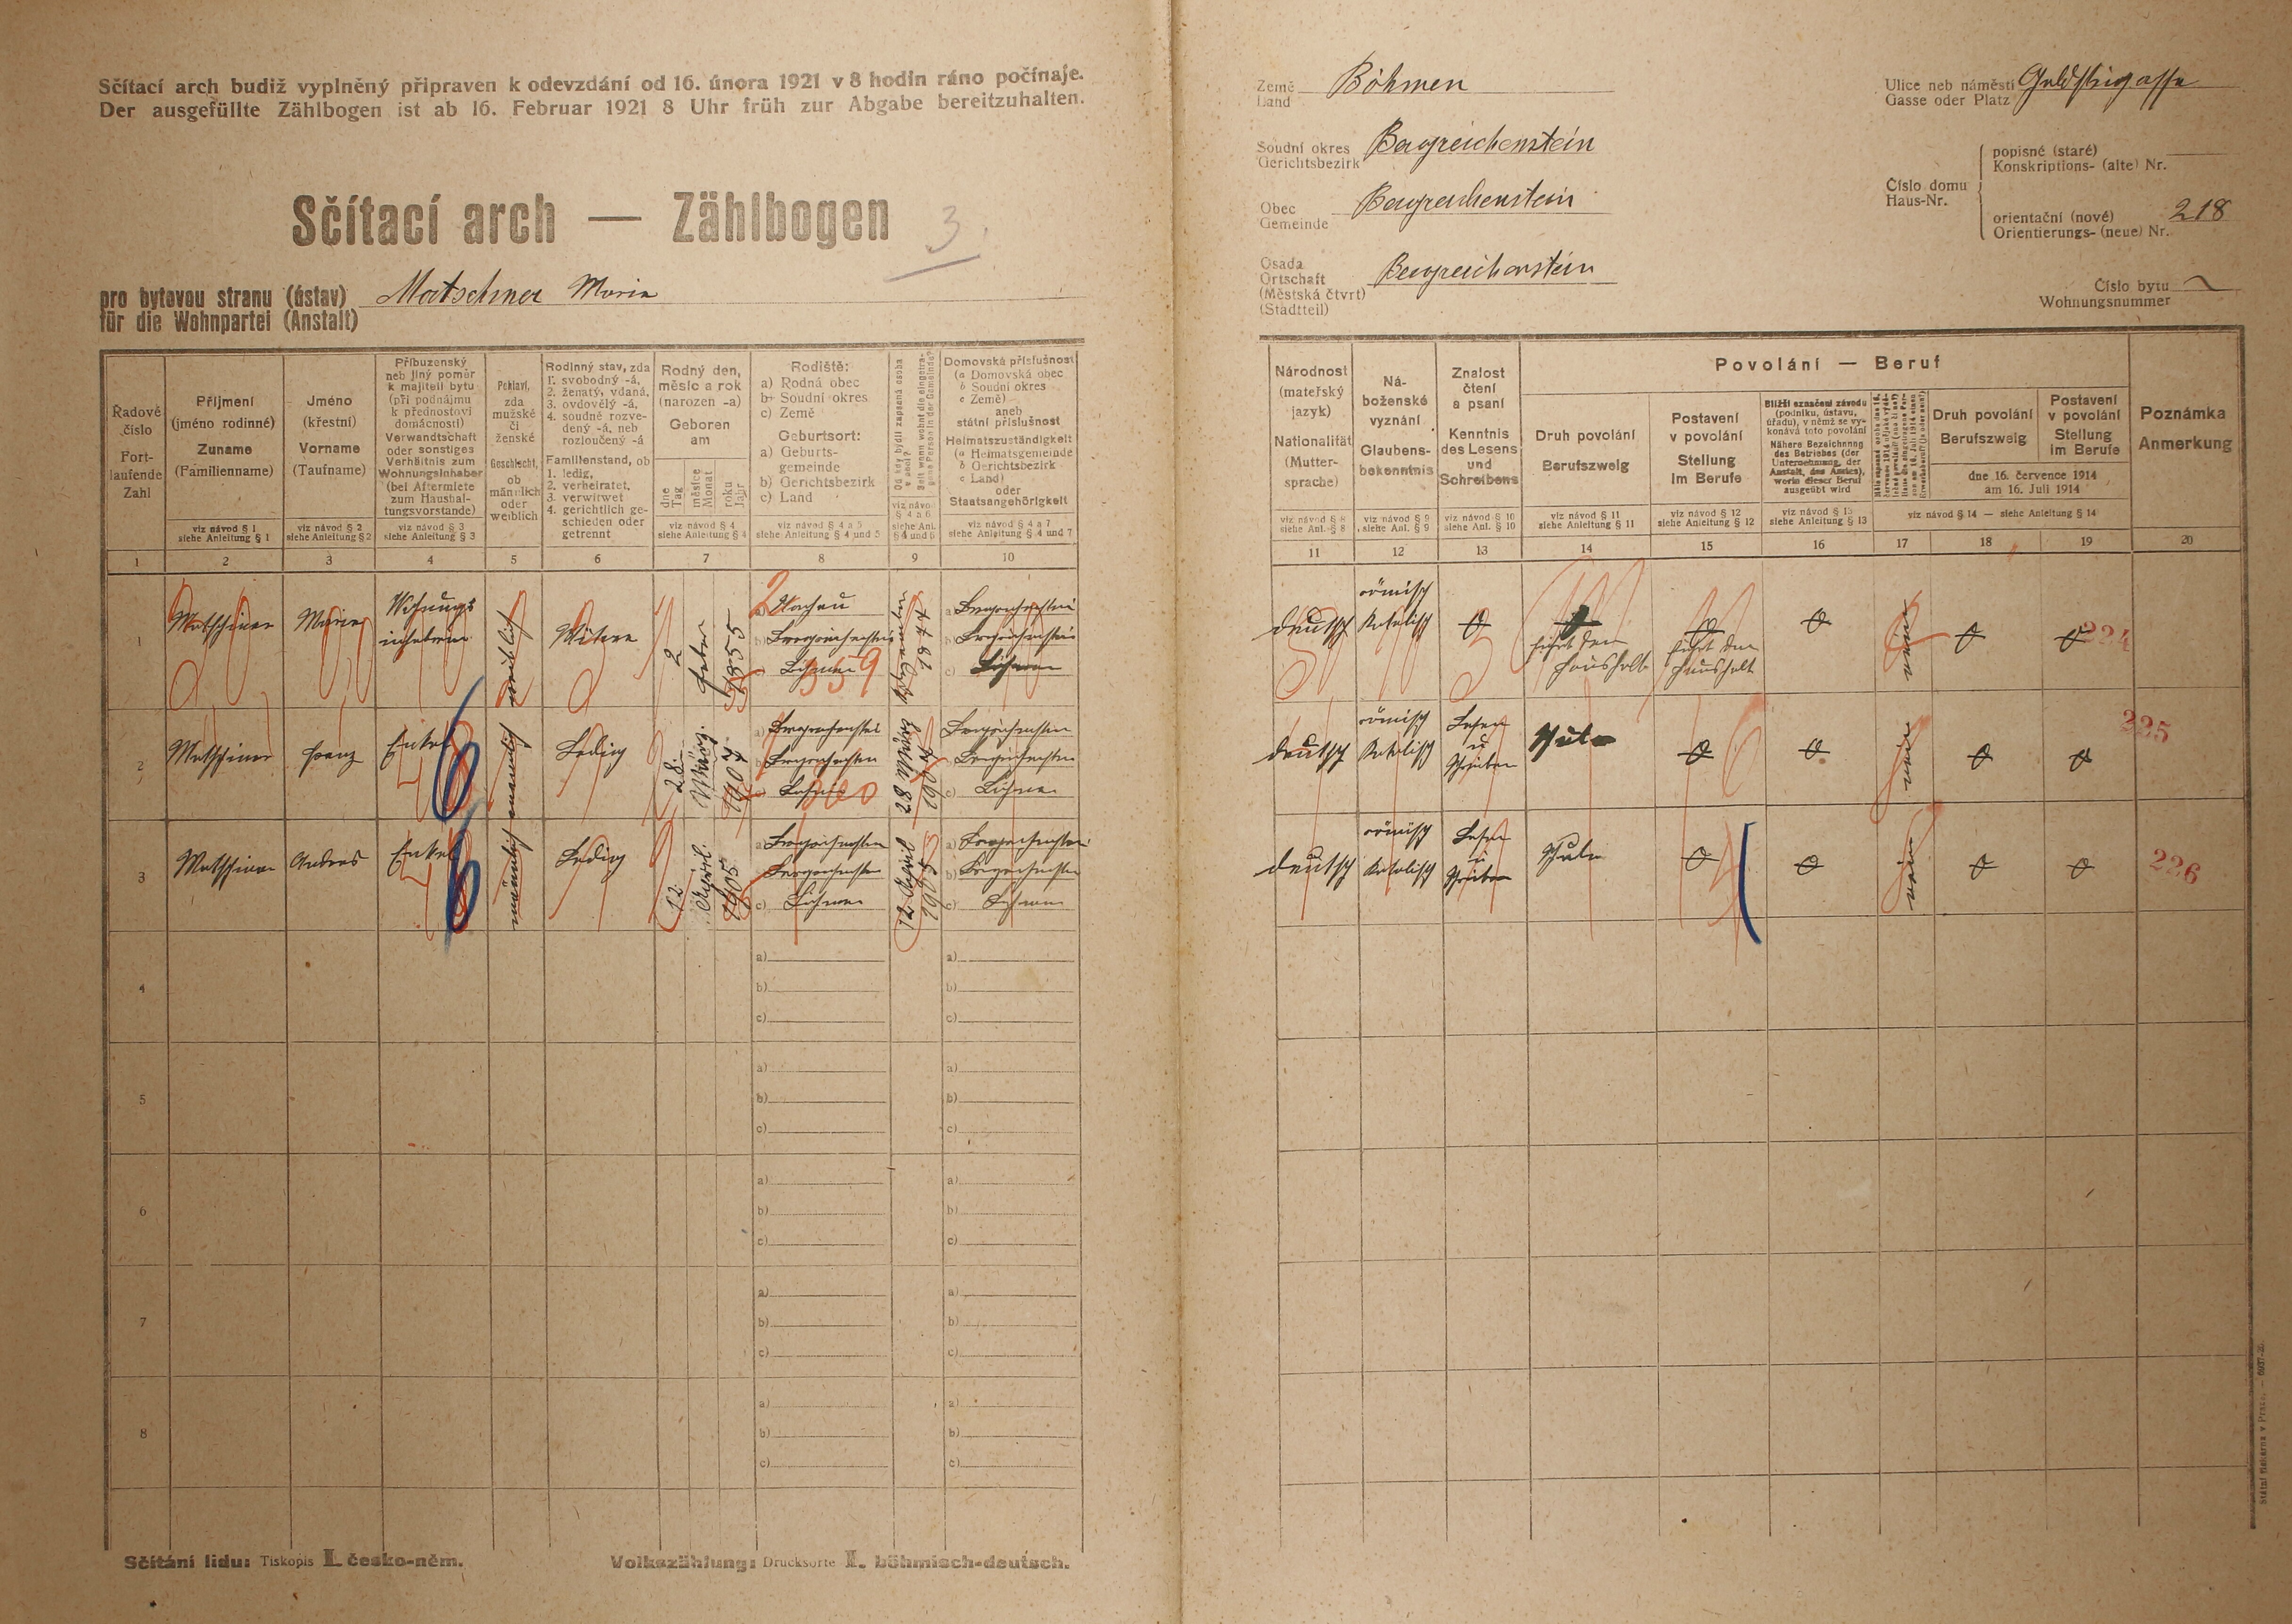 Sčítací arch budiž vyplněný připraven k odevzdání od 16. února 1921 v 8 hodin ráno počínaje.
Der ausgefüllte Zählbogen ist ab 16. Februar 1921 8 Uhr früh zur Abgabe bereitzuhalten.
Sčítací arch — Zählbogen
3.
pro bytovou stranu (ústav)
für die Wohnpartei (Anstalt)
Matschiner Marie
Země
Land
Böhmen
Soudní okres
Gerichtsbezirk
Bergreichenstein
Obec
Gemeinde
Bergreichenstein
Osada
Ortschaft
(Městská čtvrť)
(Stadtteil)
Bergreichenstein
Ulice neb náměstí
Gasse oder Platz
Číslo domu
Haus-Nr.
popisné (staré)
Konskriptions- (alte) Nr.
orientační (nové)
Orientierungs- (neue) Nr.
218
Číslo bytu
Wohnungsnummer
Řadové
číslo
Fort-
laufende
Zahl
Příjmení
(jméno rodinné)
Zuname
(Familienname)
viz návod § 1
siehe Anleitung § 1
Jméno
(křestní)
Vorname
(Taufname)
viz návod § 2
siehe Anleitung § 2
Příbuzenský
neb jiný poměr
k majiteli bytu
(při podnájmu
k přednostovi
domácnosti)
Verwandtschaft
oder sonstiges
Verhältnis zum
Wohnungsinhaber
(bei Aftermiete
zum Haushal-
tungsvorstande)
viz návod § 3
siehe Anleitung § 3
Pohlaví,
zda
mužské
či
ženské
Geschlecht,
ob
männlich
oder
weiblich
Rodinný stav, zda
1. svobodný -á,
2. ženatý, vdaná,
3. ovdovělý -á,
4. soudně rozve-
dený -á, neb
rozloučený -á
Familienstand, ob
1. ledig,
2. verheiratet,
3. verwitwet
4. gerichtlich ge-
schieden oder
getrennt
Rodný den,
měsíc a rok
(narozen -a)
Geboren
am
dne
Tag
měsíce
Monat
roku
Jahr
viz návod § 4
siehe Anleitung § 4
Rodiště:
a) Rodná obec
b) Soudní okres
c) Země
Geburtsort:
a) Geburts-
gemeinde
b) Gerichtsbezirk
c) Land
viz návod § 4 a 5
siehe Anleitung § 4 und 5
Od kdy bydlí zapsaná osoba
v obci?
Seit wann wohnt die eingetra-
gene Person in der Gemeinde?
viz návod
§ 4 a 6
siehe Anl.
§ 4 und 6
Domovská příslušnost
(a Domovská obec
b Soudní okres
c Země)
aneb
státní příslušnost
Heimatszuständigkeit
(a Heimatsgemeinde
b Gerichtsbezirk
c Land)
oder
Staatsangehörigkeit
viz návod § 4 a 7
siehe Anleitung § 4 und 7
Národnost
(mateřský
jazyk)
Nationalität
(Mutter-
sprache)
viz návod § 8
siehe Anl. § 8
Ná-
boženské
vyznání
Glaubens-
bekenntnis
viz návod § 9
siehe Anl. § 9
Znalost
čtení
a psaní
Kenntnis
des Lesens
und
Schreibens
viz návod § 10
siehe Anl. § 10
Povolání — Beruf
Druh povolání
Berufszweig
viz návod § 11
siehe Anleitung § 11
Postavení
v povolání
Stellung
im Berufe
viz návod § 12
siehe Anleitung § 12
Bližší označení závodu
(podniku, ústavu,
úřadu), v němž se vy-
konává toto povolání
Nähere Bezeichnung
des Betriebes (der
Unternehmung, der
Anstalt, des Amtes),
worin dieser Beruf
ausgeübt wird
viz návod § 13
siehe Anleitung § 13
Druh povolání
Berufszweig
Postavení
v povolání
Stellung
im Berufe
dne 16. července 1914
am 16. Juli 1914
viz návod § 14 — siehe Anleitung § 14
Poznámka
Anmerkung
1 2 3 4 5 6 7 8 9 10
11 12 13 14 15 16 17 18 19 20
1
Matschiner
Marie
Wohnungs
inhaberin
weiblich
Witwe
2
Feber
1855
Bergreichenstein
Böhmen
359
1874
Bergreichenstein
Bergreichenstein
Böhmen
deutsch
römisch
Katolisch
führt den
Haushalt
führt den
Haushalt
nein
224
2
Matschiner
Franz
Enkel
männlich
Ledig
28.
März.
1907
Bergreichenstein
Bergreichenstein
Böhmen
360
28 März
1907
Bergreichenstein
Bergreichenstein
Böhmen
deutsch
römisch
Katolisch
Lesen
u
Schreiben
Schule
nein
225
3
Matschiner
Andreas
Enkel
männlich
Ledig
12.
April.
1905
a) Bergreichenstein
Bergreichenstein
c) Böhmen
12 April
1905
a) Bergreichenstein
b) Bergreichenstein
c) Böhmen
deutsch
römisch
Katolisch
Lesen
u
Schreiben
Schule
nein
226
4
a) a)
b) b)
c) c)
5
a) a)
b) b)
c) c)
6
a) a)
b) b)
c) c)
7
a) a)
b) b)
c) c)
8
a) a)
b) b)
c) c)
Sčítání lidu: Tiskopis I. česko-něm.
Volkszählung: Drucksorte I. böhmisch-deutsch.